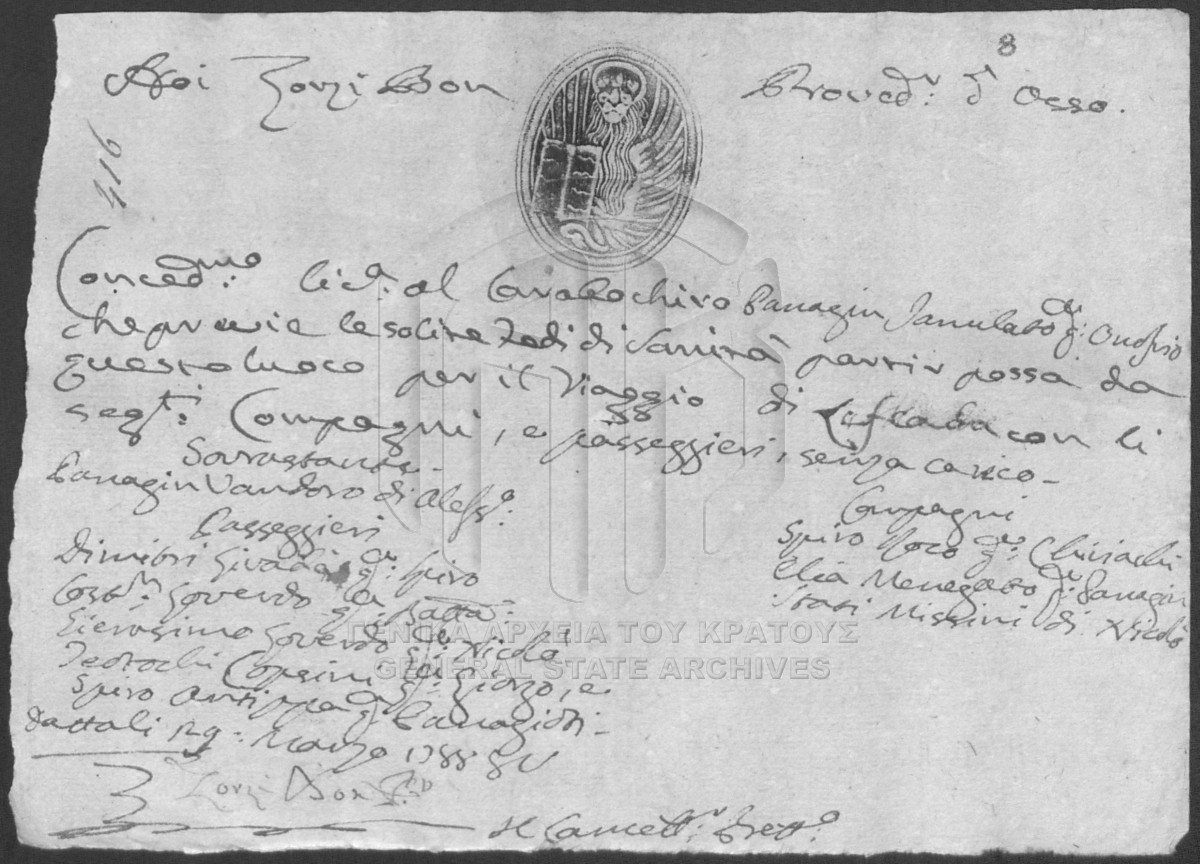 8
Noi Zorzi Bon Proved:r d'Asso.
416
Conced:mo lic:a al Caralochiro Panagin Jamulato q: Onofrio
che previe le solite Fedi di Sanità partir possa da
questo luoco per il Viaggio di Lefcada con li
seg:ti Compagni, e passeggieri, senza carico -
Sovrastante -
Panagin Vandoro di Aless:o
Passeggieri
Dimitri Sivada q: Spiro
Cost:n Soverdo q: Batta:
Gierasimo Soverdo q: Nicolò
Teodochi Copsini q: Giorzo, e
Spiro Antippa q: Panagioti -
Compagni
Spiro Roco q: Chiriachi
Elia Menegato q: Panagin
Stati Missini di Nicolò
Dattali 29: Marzo 1788 SV
Zorzi Bon P:r
Il Cancell:r Prett:o
ΓΕΝΙΚΑ ΑΡΧΕΙΑ ΤΟΥ ΚΡΑΤΟΥΣ
GENERAL STATE ARCHIVES